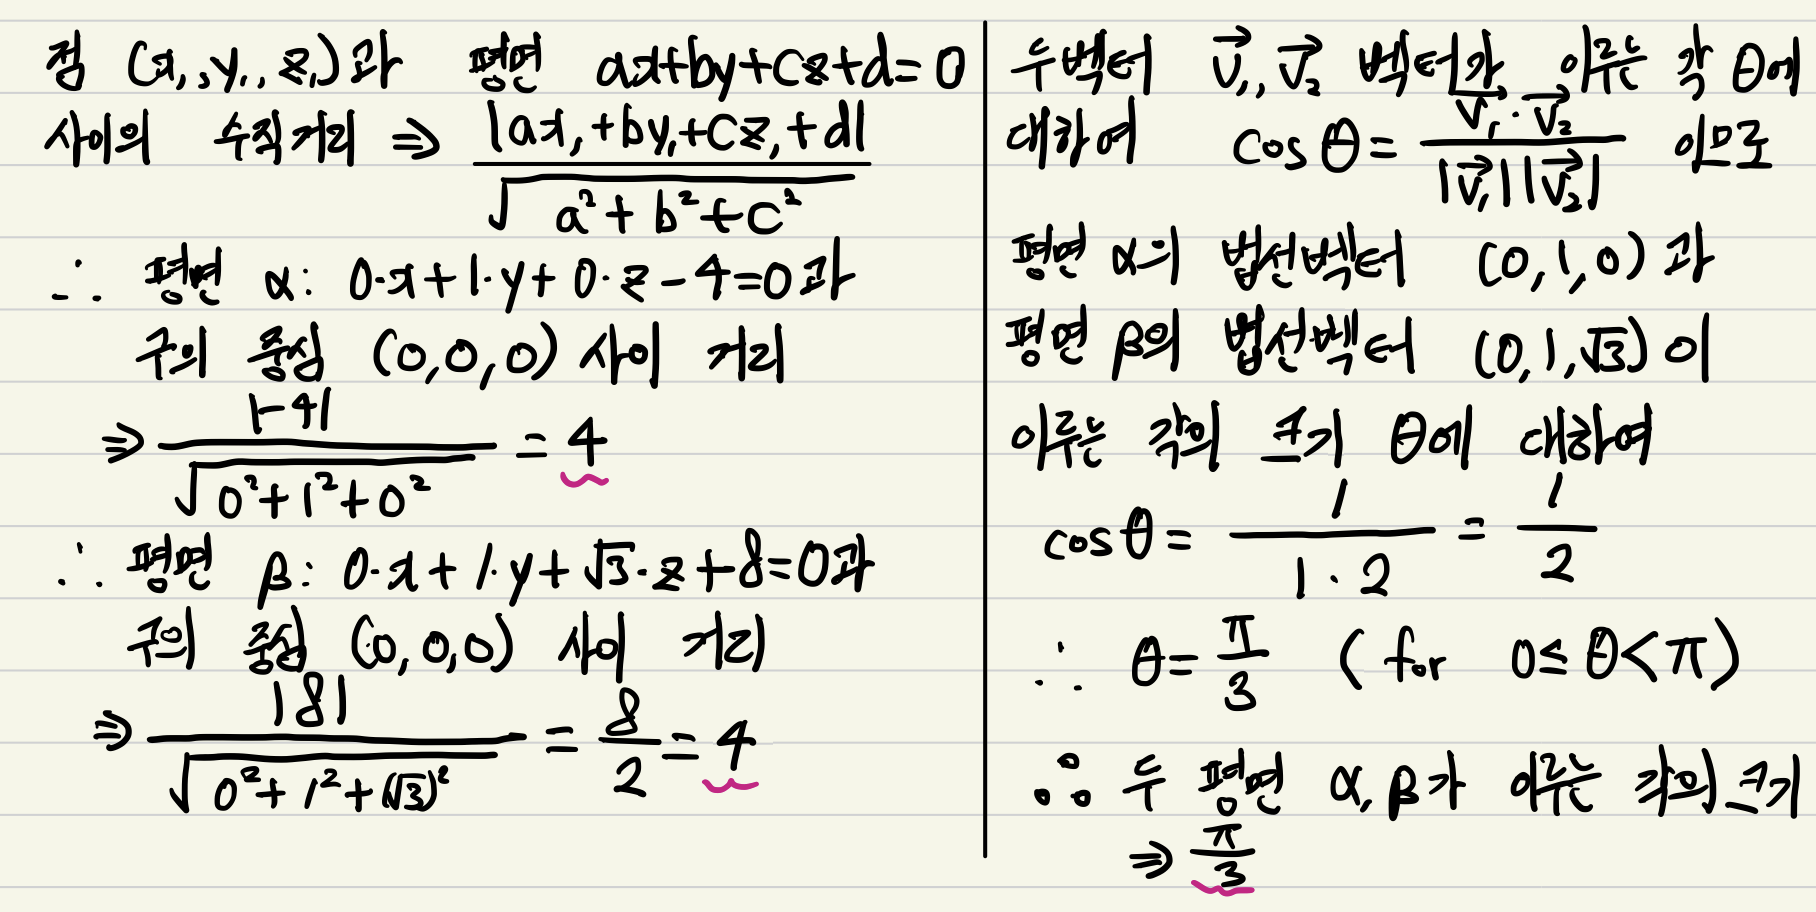 점 (x₁, y₁, z₁)과 평면 ax+by+cz+d=0
사이의 수직거리 ⇒ |ax₁+by₁+cz₁+d| / √(a²+b²+c²)
∴ 평면 α: 0·x+1·y+0·z-4=0과
구의 중심 (0,0,0) 사이 거리
⇒ |-4| / √(0²+1²+0²) = 4
∴ 평면 β: 0·x+1·y+√3·z+8=0과
구의 중심 (0,0,0) 사이 거리
⇒ |8| / √(0²+1²+(√3)²) = 8/2 = 4
두 벡터 v₁, v₂ 벡터가 이루는 각 θ에
대하여 cosθ = v₁·v₂ / |v₁||v₂| 이므로
평면 α의 법선벡터 (0,1,0)과
평면 β의 법선벡터 (0,1,√3)이
이루는 각의 크기 θ에 대하여
cosθ = 1 / 1·2 = 1/2
∴ θ = π/3 (for 0≤θ<π)
∴ 두 평면 α, β가 이루는 각의 크기
⇒ π/3